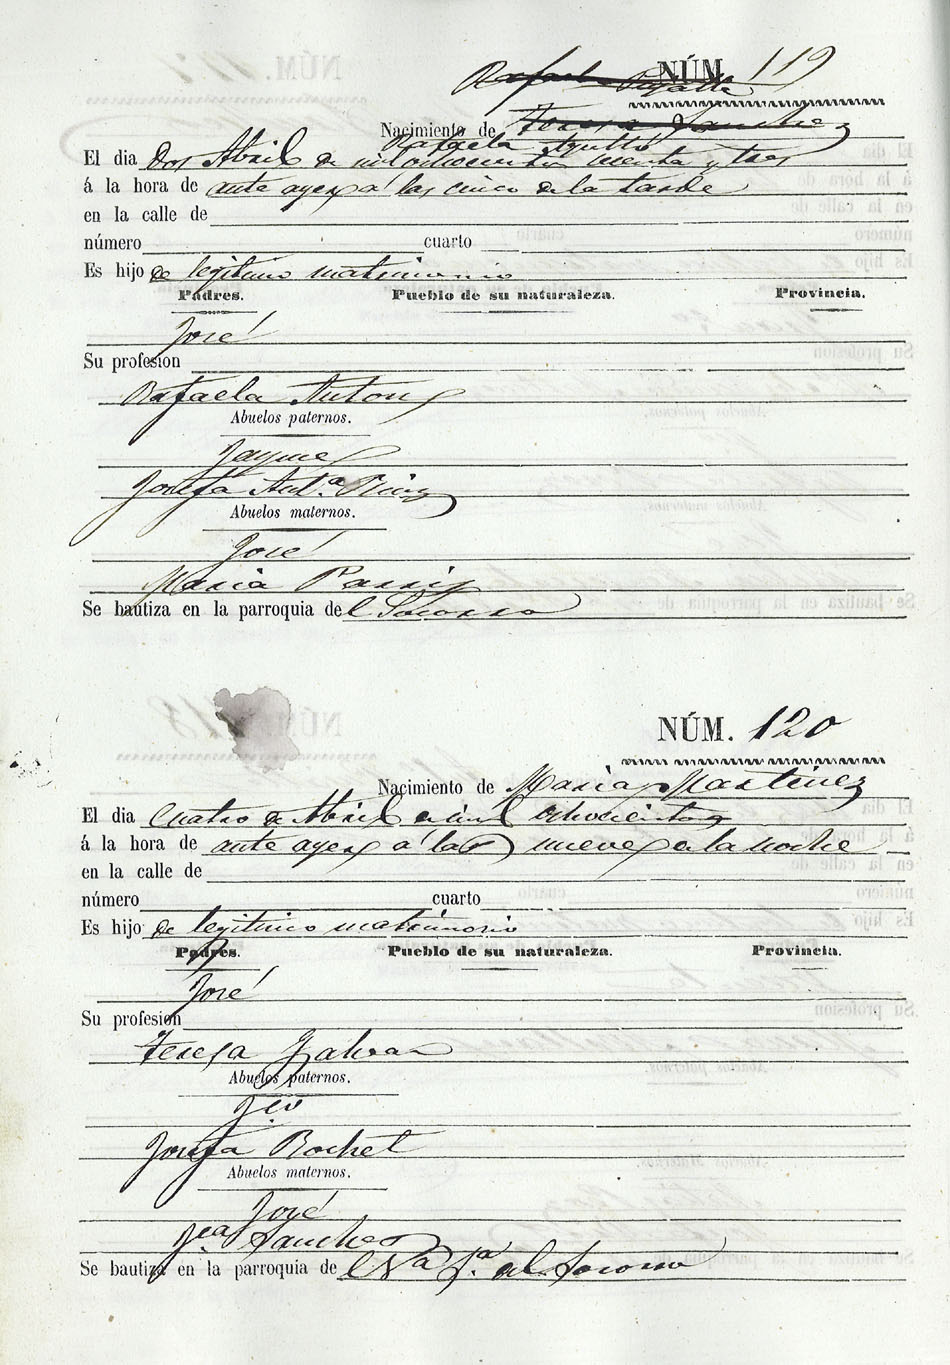 NÚM. 119
Nacimiento de Teresa Sanchez
Rafaela Agulló
El dia Dos Abril de mil ochocientos y tres
á la hora de ante ayer á las cinco de la tarde
en la calle de
número cuarto
Es hijo de legitimo matrimonio
Padres. Pueblo de su naturaleza. Provincia.
José
Su profesion
Rafaela Anton
Abuelos paternos.
Jayme
Josefa Ant.ª
Abuelos maternos.
José
Maria
Se bautiza en la parroquia de l Socorro
NÚM. 120
Nacimiento de Maria Martinez
El dia Cuatro de Abril de mil ochocientos
á la hora de ante ayer á las nueve de la noche
en la calle de
número cuarto
Es hijo de legitimo matrimonio
Padres. Pueblo de su naturaleza. Provincia.
José
Su profesion
Teresa
Abuelos paternos.
Josefa Rochel
Abuelos maternos.
José
Sanchez
Se bautiza en la parroquia de N.ª S.ª del Socorro